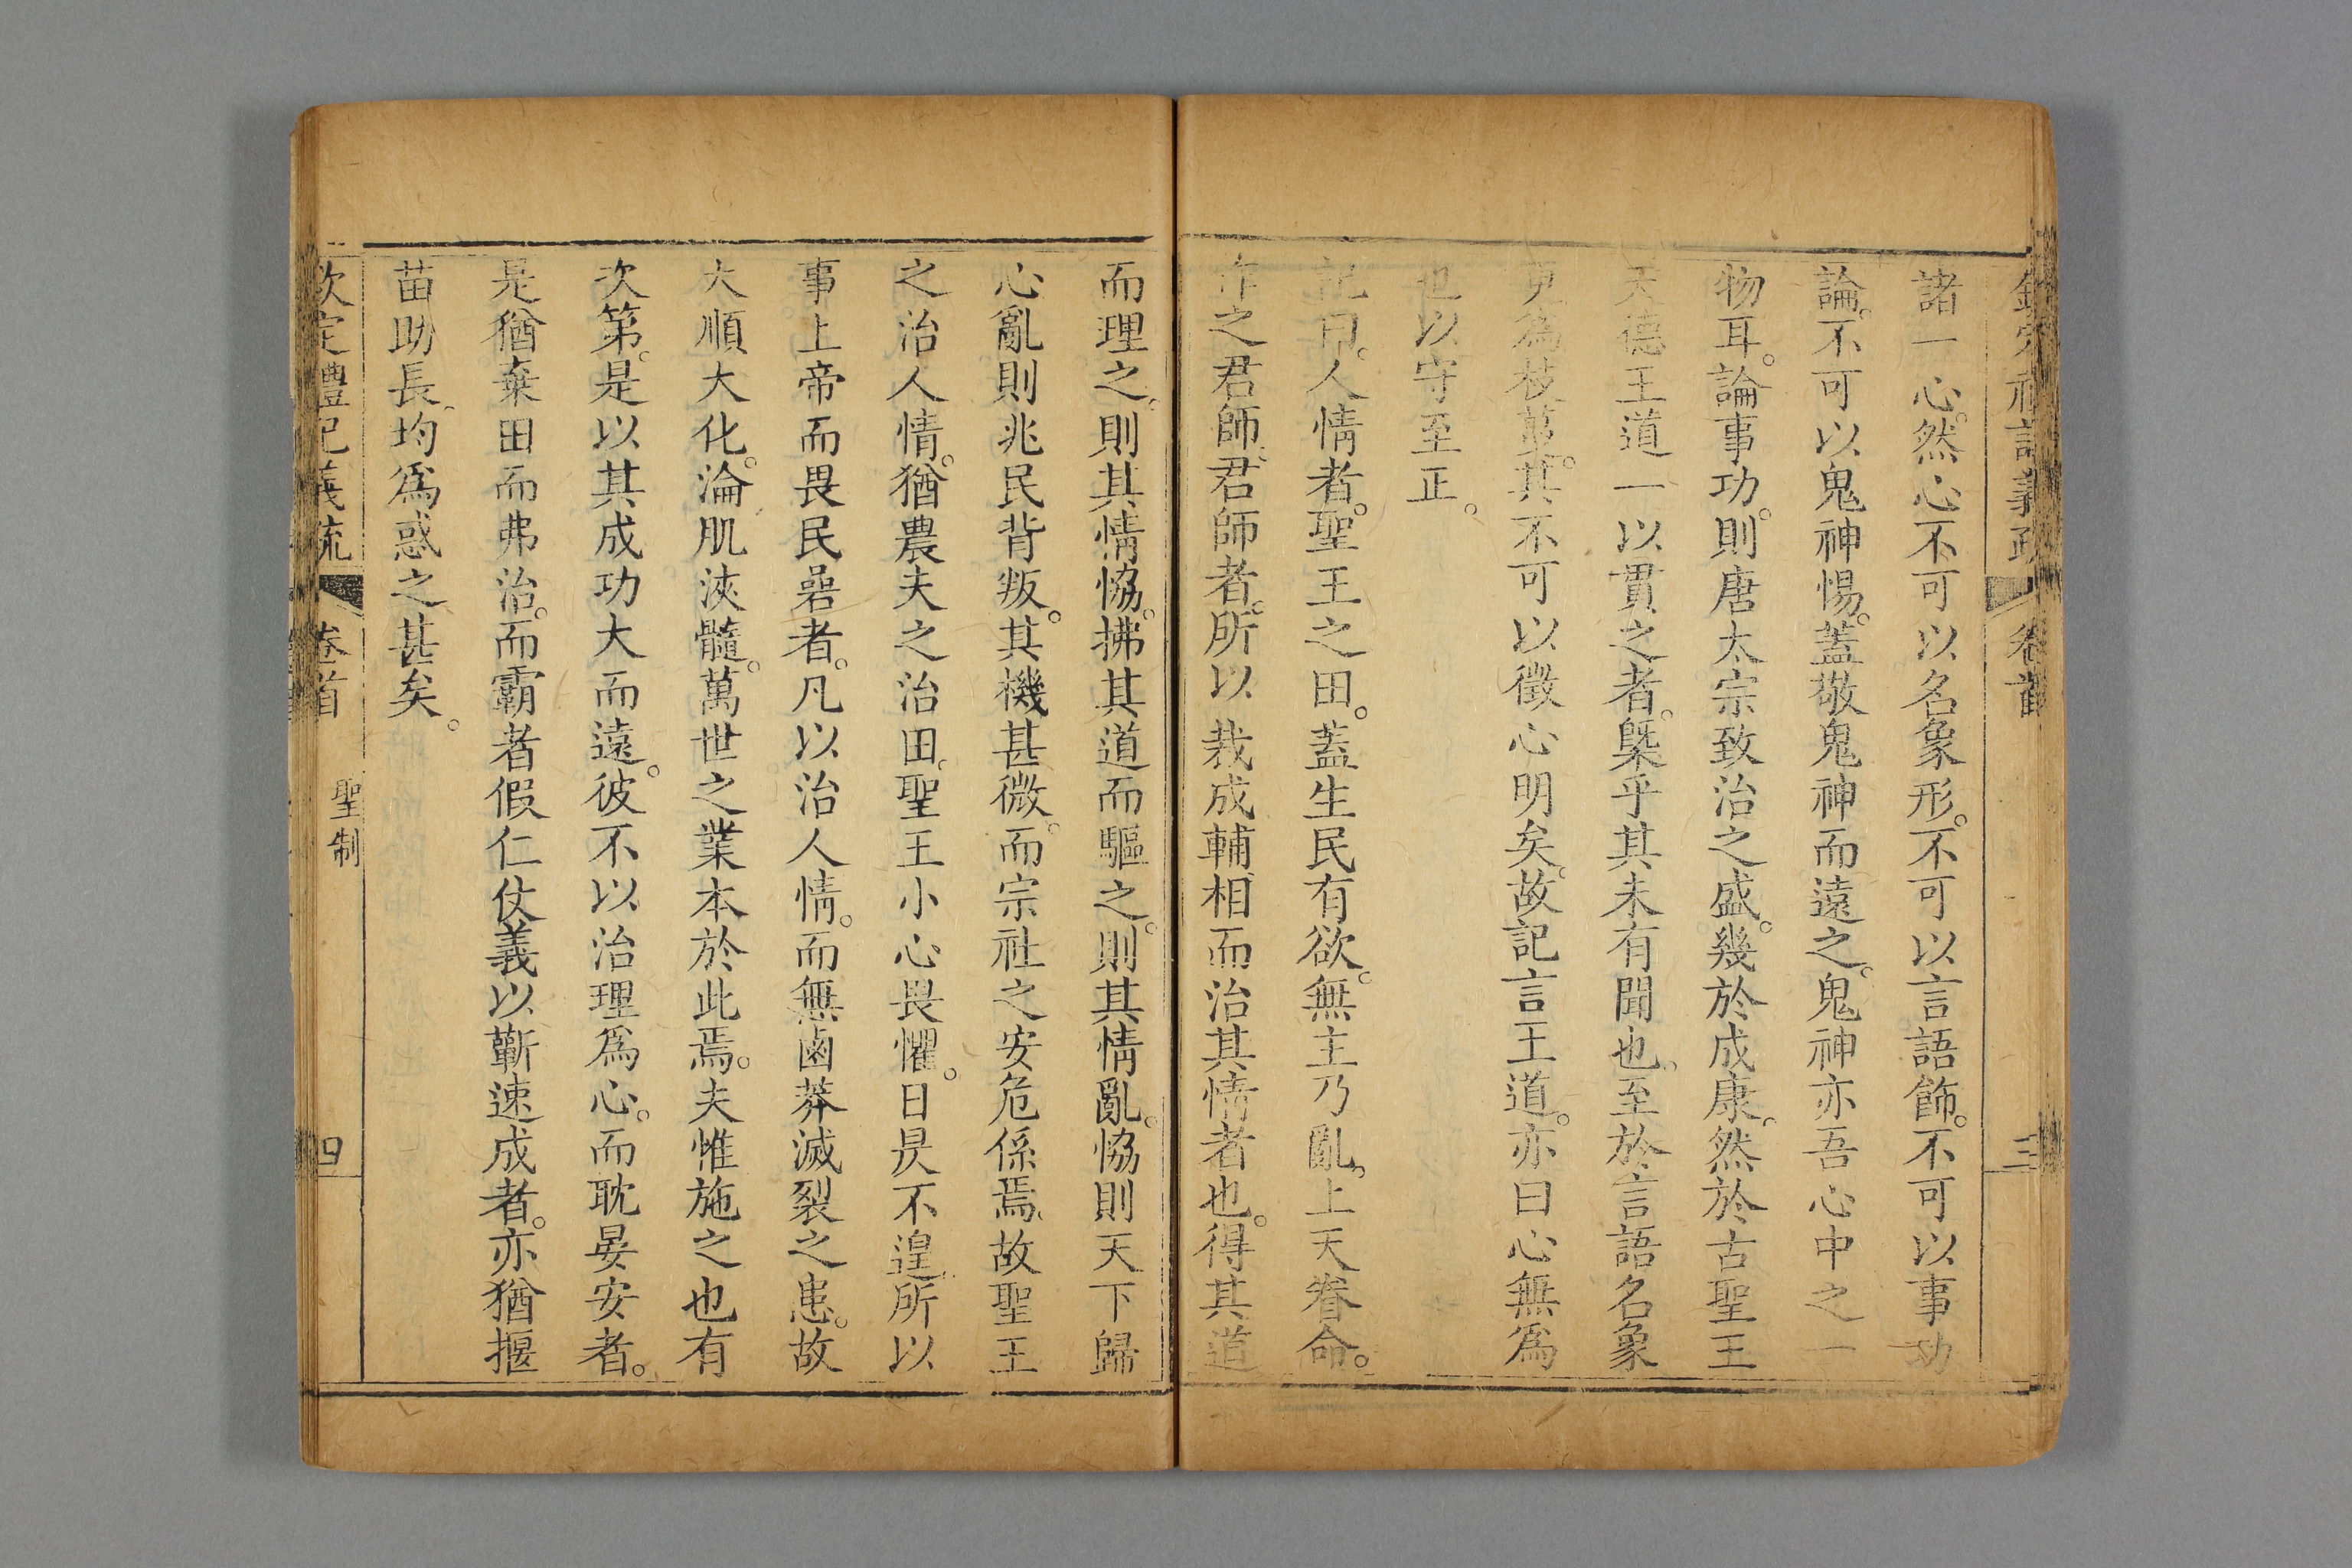 欽定禮記義疏 卷首 三
諸一心。然心不可以名象形。不可以言語飾。不可以事功
論。不可以鬼神惕。蓋敬鬼神而遠之。鬼神亦吾心中之一
物耳。論事功。則唐太宗致治之盛。幾於成康。然於古聖王
天德王道一以貫之者。槩乎其未有聞也。至於言語名象
更為枝葉。其不可以徵心明矣。故記言王道。亦曰心無為
也以守至正。
記曰。人情者。聖王之田。蓋生民有欲。無主乃亂。上天眷命。
作之君師。君師者。所以裁成輔相而治其情者也。得其道
而理之。則其情恊。拂其道而驅之。則其情亂。恊則天下歸
心亂則兆民背叛。其機甚微。而宗社之安危係焉。故聖王
之治人情。猶農夫之治田。聖王小心畏懼。日昃不遑。所以
事上帝而畏民碞者。凡以治人情。而無鹵莽滅裂之患。故
大順大化。淪肌浹髓。萬世之業本於此焉。夫惟施之也有
次第。是以其成功大而遠。彼不以治理為心。而耽晏安者。
是猶棄田而弗治。而霸者假仁仗義以蘄速成者。亦猶揠
苗助長。均為惑之甚矣。
欽定禮記義疏 卷首 聖制 四